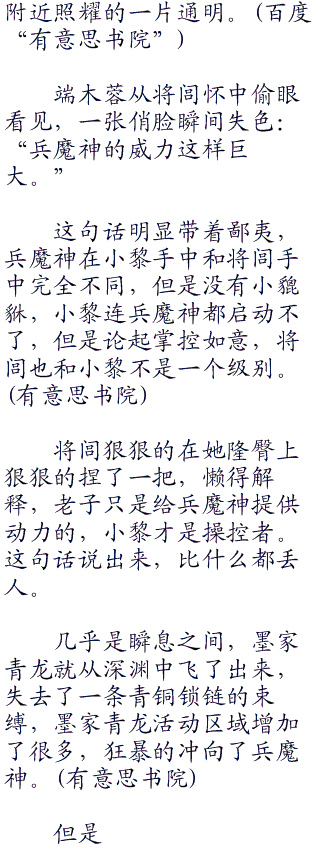 附近照耀的一片通明。(百度
“有意思书院”)
端木蓉从将闾怀中偷眼
看见，一张俏脸瞬间失色：
“兵魔神的威力这样巨
大。”
这句话明显带着鄙夷，
兵魔神在小黎手中和将闾手
中完全不同，但是没有小貔
貅，小黎连兵魔神都启动不
了，但是论起掌控如意，将
闾也和小黎不是一个级别。
(有意思书院)
将闾狠狠的在她隆臀上
狠狠的捏了一把，懒得解
释，老子只是给兵魔神提供
动力的，小黎才是操控者。
这句话说出来，比什么都丢
人。
几乎是瞬息之间，墨家
青龙就从深渊中飞了出来，
失去了一条青铜锁链的束
缚，墨家青龙活动区域增加
了很多，狂暴的冲向了兵魔
神。(有意思书院)
但是